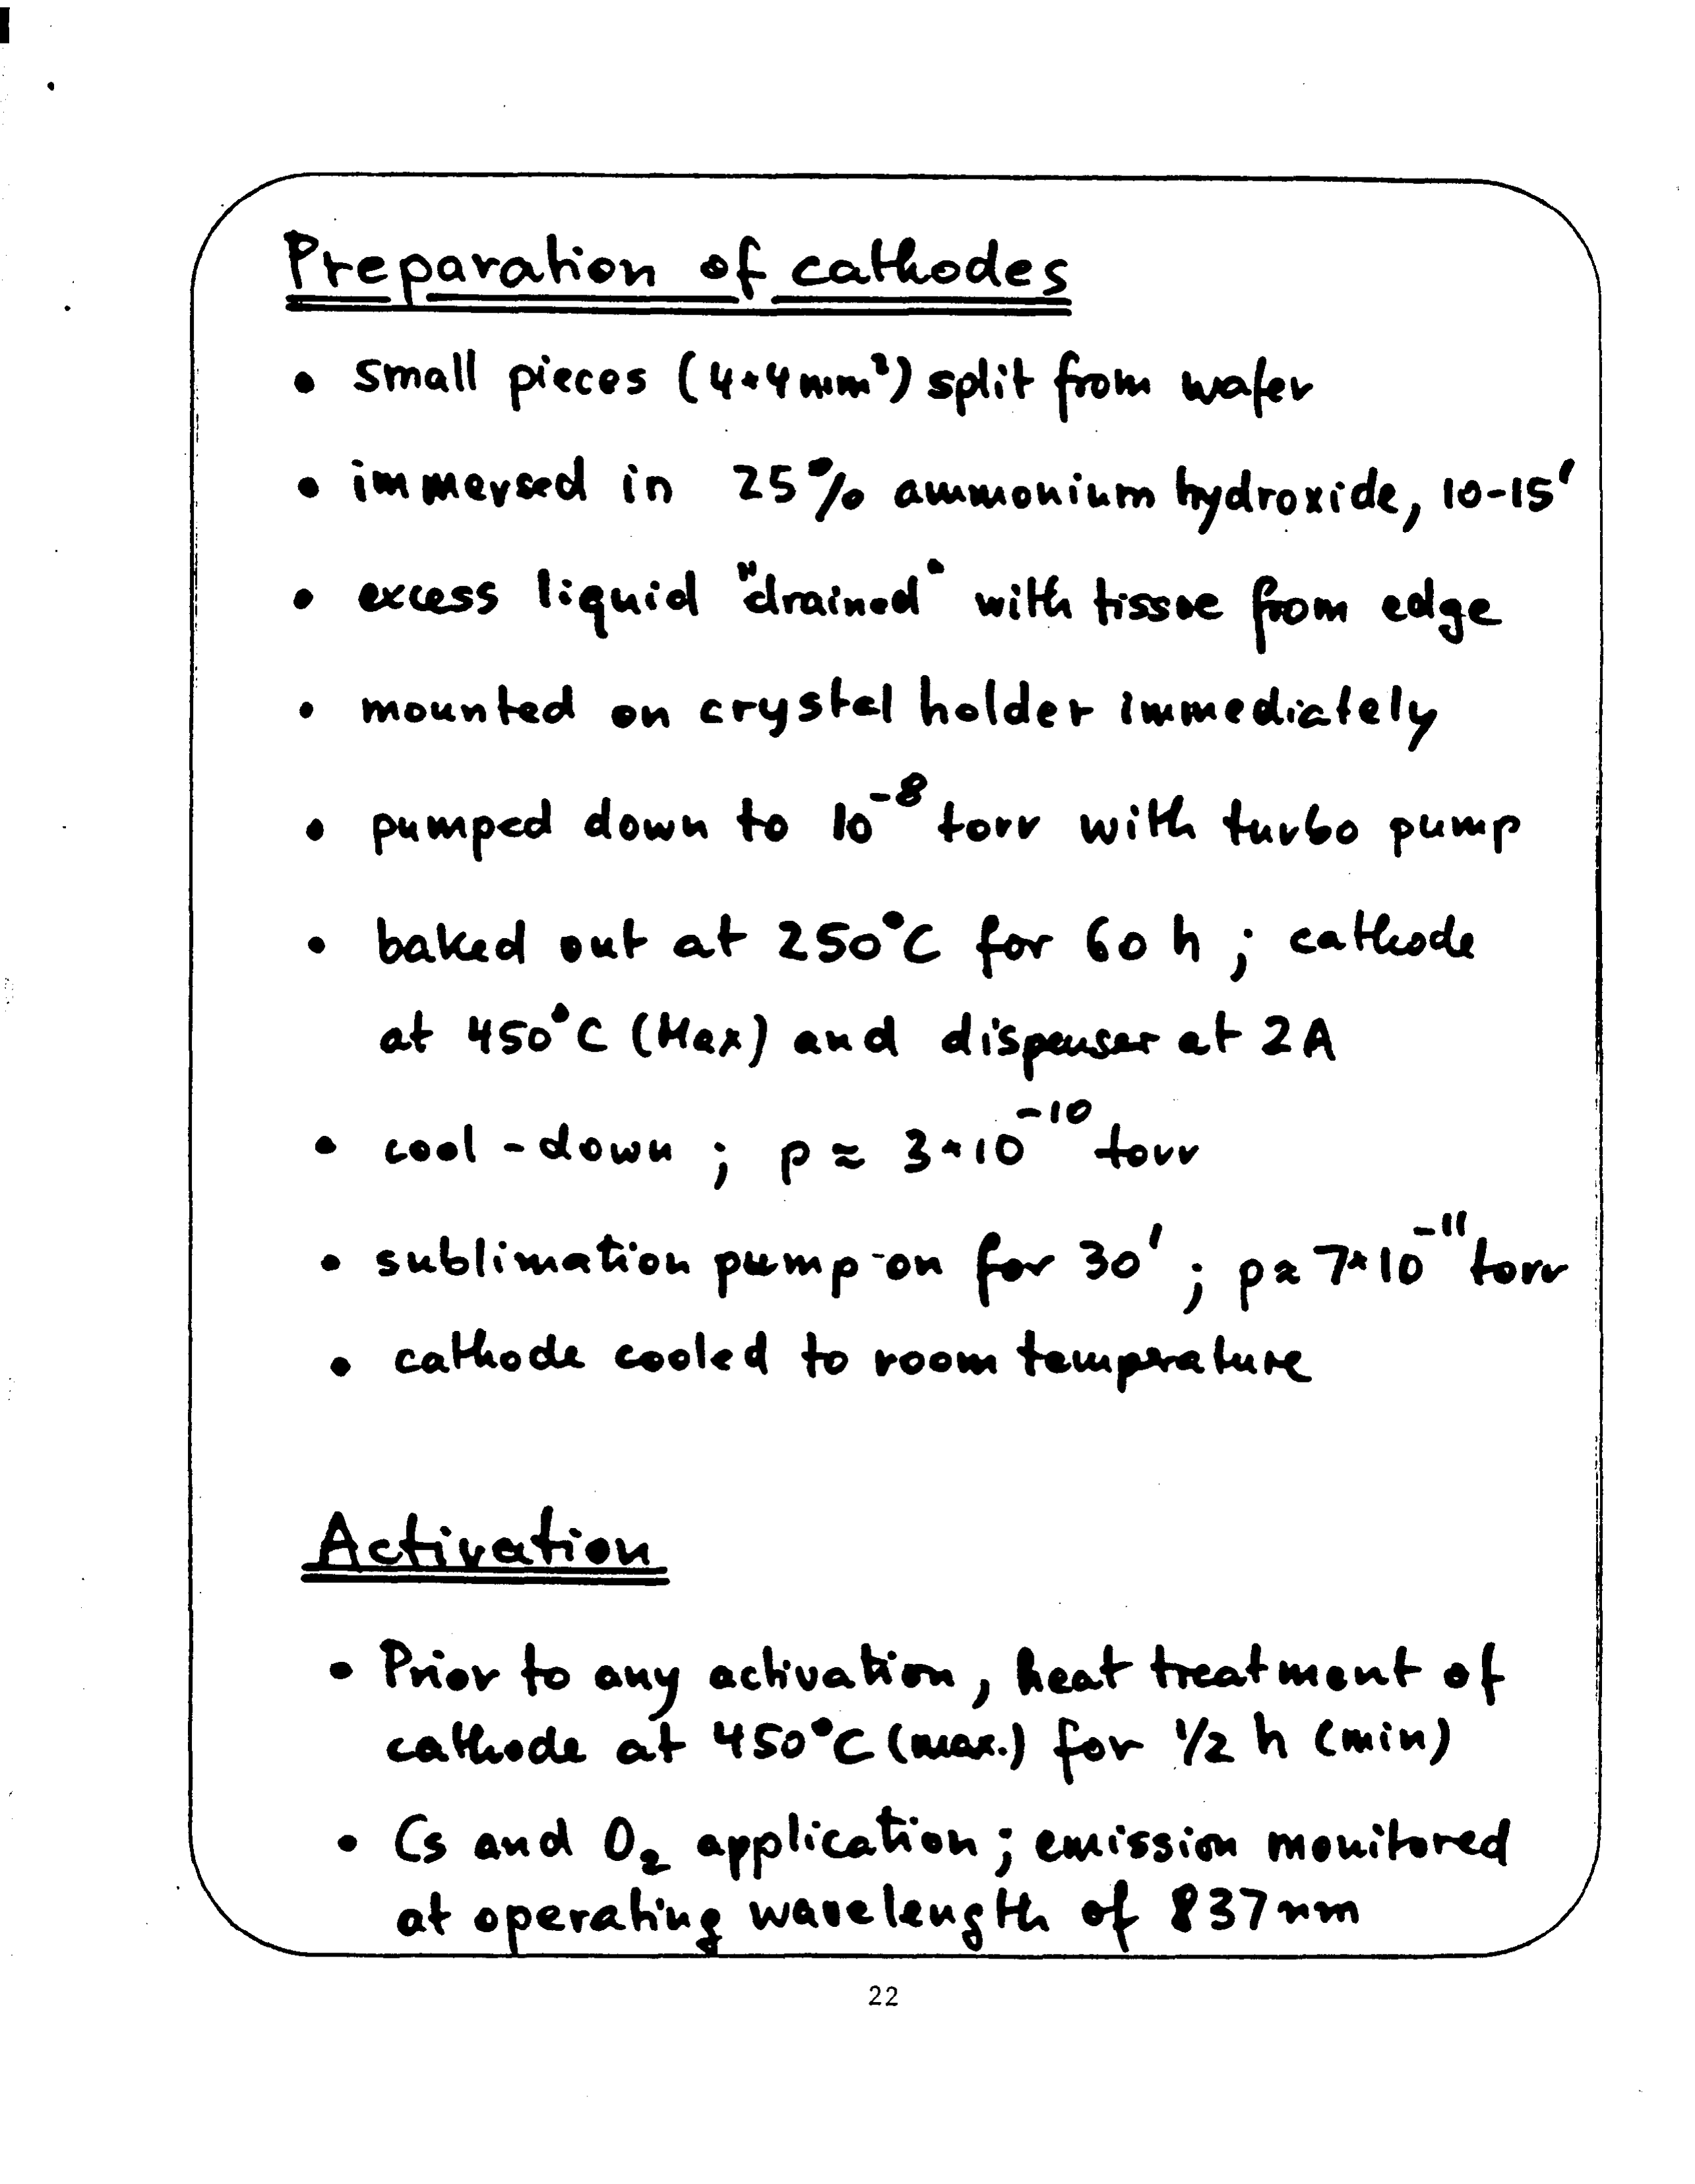 Preparation of cathodes
• small pieces (4*4mm²) split from wafer
• immersed in 25% ammonium hydroxide, 10-15'
• excess liquid "drained" with tissue from edge
• mounted on crystal holder immediately
• pumped down to 10⁻⁸ torr with turbo pump
• baked out at 250°C for 60 h ; cathode
at 450°C (Max) and dispenser at 2A
• cool-down ; p ≈ 3*10⁻¹⁰ torr
• sublimation pump-on for 30' ; p≈ 7*10⁻¹¹ torr
• cathode cooled to room temperature
Activation
• Prior to any activation, heat treatment of
cathode at 450°C (max.) for 1/2 h (min)
• Cs and O₂ application ; emission monitored
at operating wavelength of 837nm
22